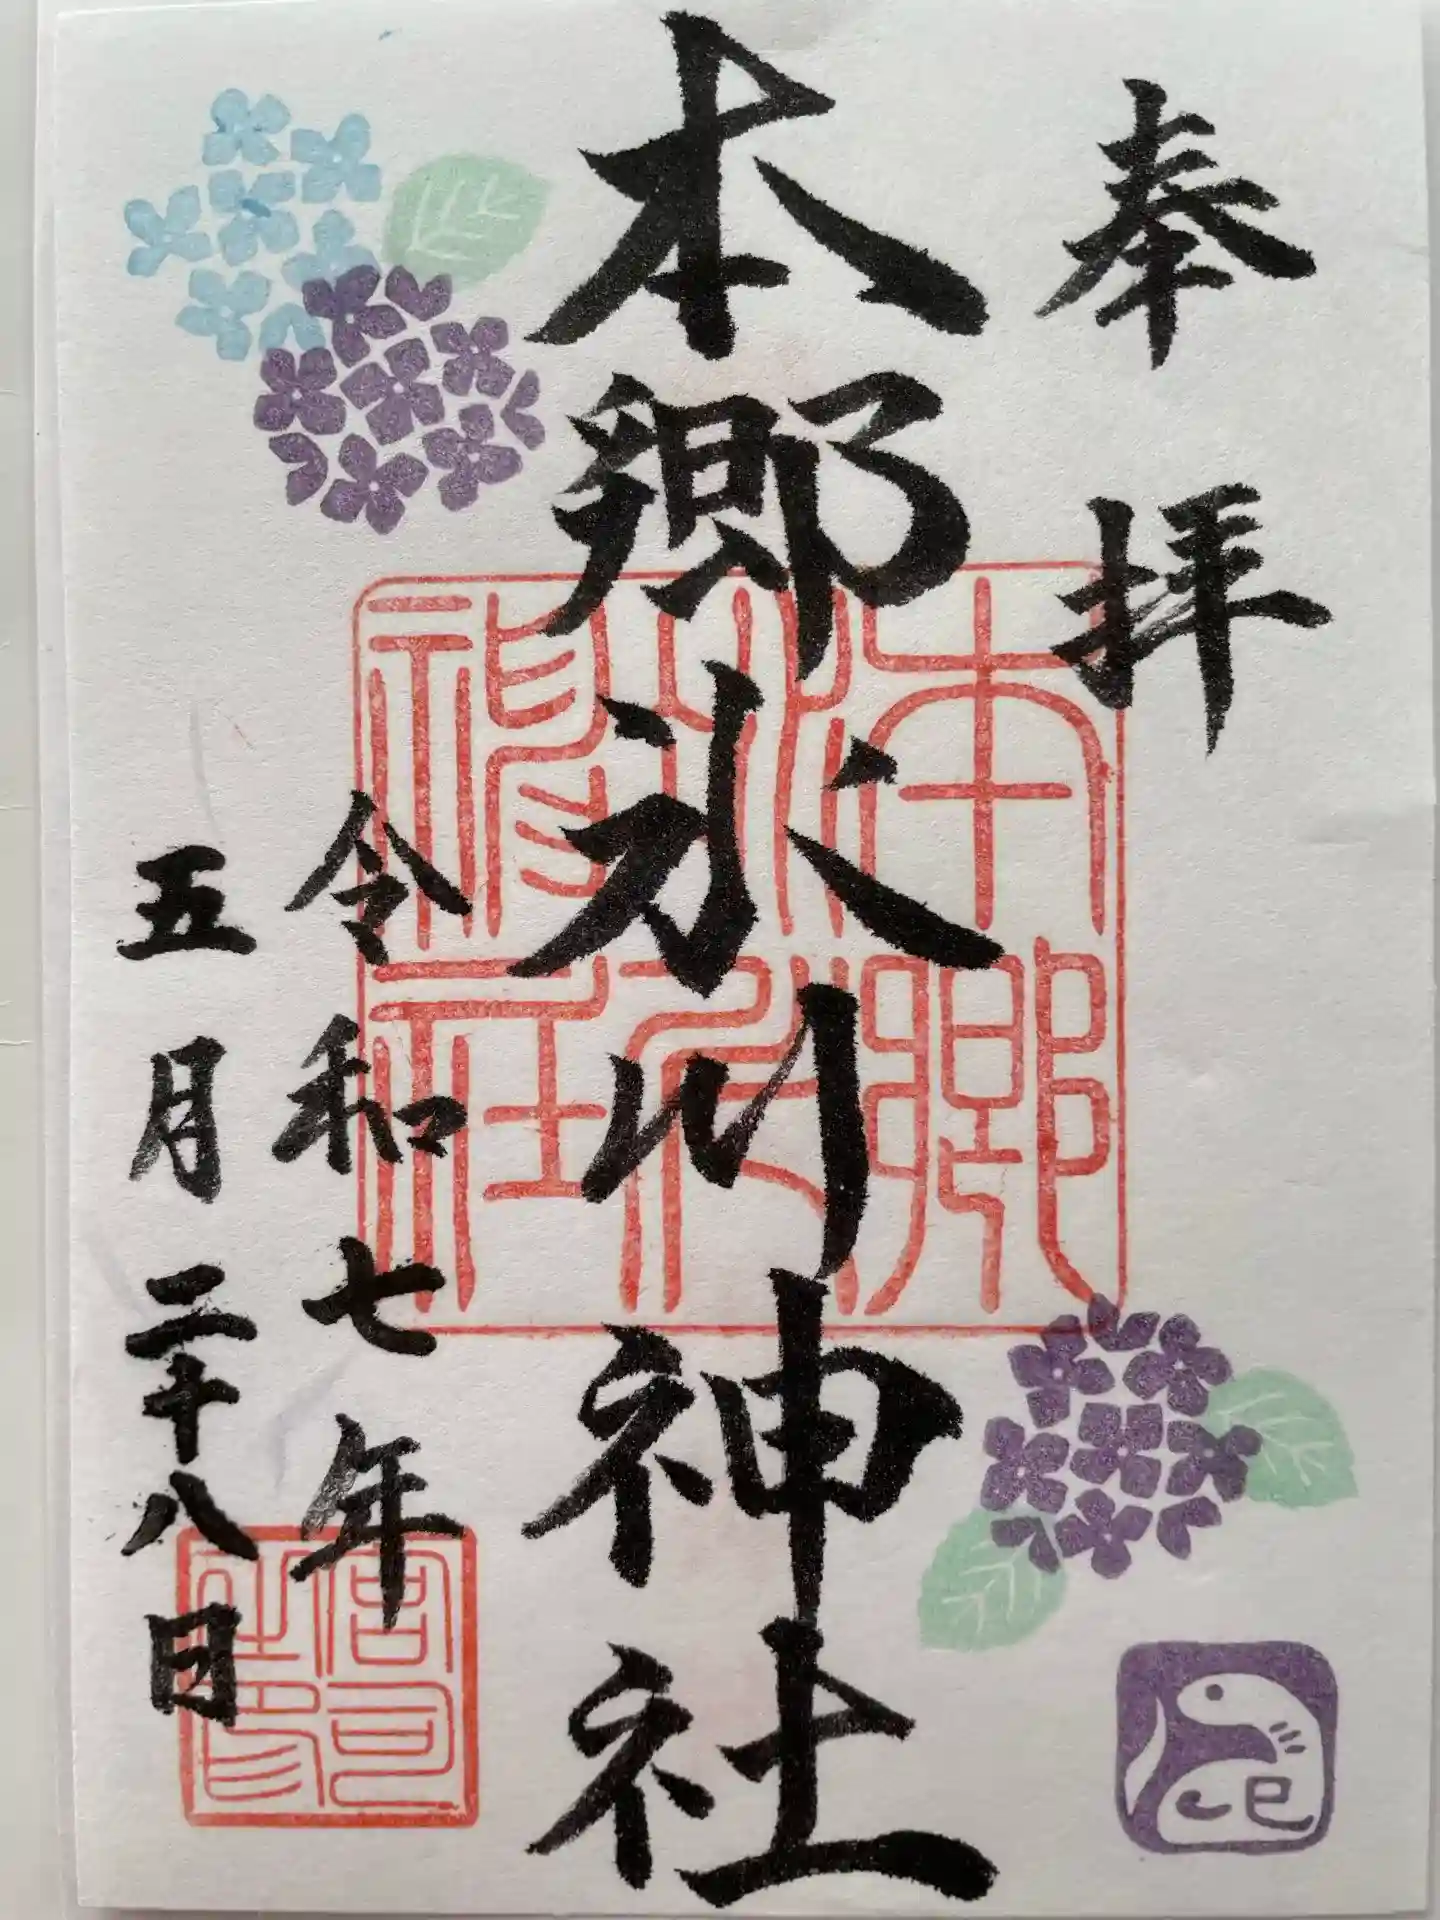 奉拝
本郷氷川神社
令和七年
五月二十八日
本郷氷川神社
宮司之印
巳